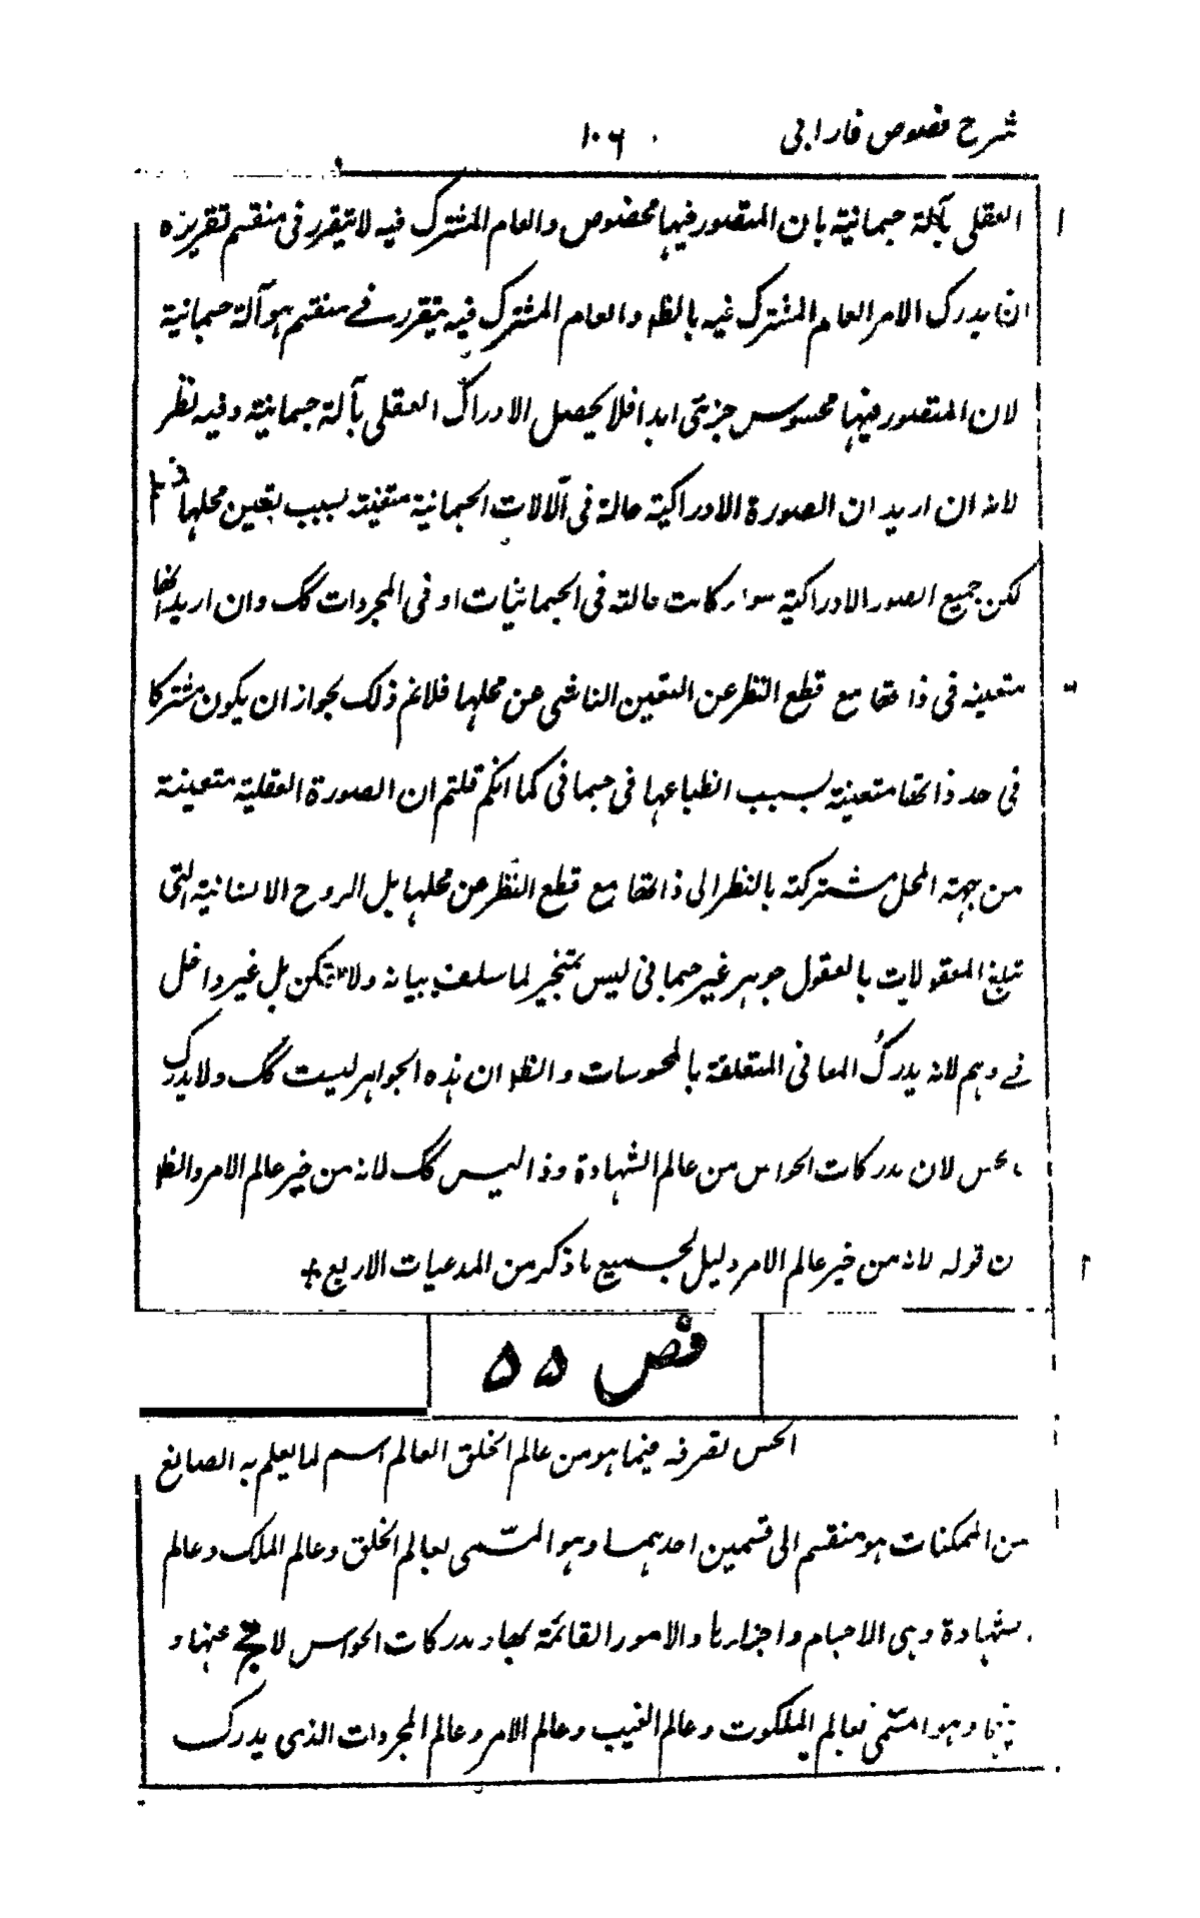 شرح فصوص فارابی ۱۰۶
العقلی بآلة جسمانیة بان المتصور فیها مخصوص والعام المشترک فیه لا یتقرر فی منقسم تقریره
ان یدرک الامر العام المشترک فیه بالظ والعام المشترک فیه یتقرر فے منقسم هو آلة جسمانیة
لان المتصور فیها محسوس جزئی ابدا فلا یحصل الادراک العقلی بآلة جسمانیة وفیه نظر
لانه ان ارید ان الصورة الادراکیة حالة فی الآلات الجسمانیة متعینة بسبب تعین محلها
لکن جمیع الصور الادراکیة سواء کانت حالة فی الجسمانیات او فی المجردات کک وان ارید انها
متعینه فی ذاتها مع قطع النظر عن التعین الناشی عن محلها فلا نم ذلک لجواز ان یکون مشترکا
فی حد ذاتها متعینة بسبب انطباعها فی جسمانی کما انکم قلتم ان الصورة العقلیة متعینة
من جهة المحل مشترکة بالنظر الی ذاتها مع قطع النظر عن محلها بل الروح الانسانیة التی
تبلغ المعقولات بالعقول جوهر غیر جسمانی لیس بمتحیز لما سلف بیانه ولا متمکن بل غیر داخل
فے وهم لانه یدرک المعانی المتعلقة بالمحسوسات والظ ان هذه الجواهر لیست کک ولا یدرک
بحس لان مدرکات الحواس من عالم الشهادة وذا لیس کک لانه من خیر عالم الامر والظ
ن قوله لانه من خیر عالم الامر دلیل لجمیع ما ذکر من المدعیات الاربع +
فص ۵۵
الحس تصرفه فیما هو من عالم الخلق العالم اسم لما یعلم به الصانع
من الممکنات هو منقسم الی قسمین احدهما وهو المسمی بعالم الخلق وعالم الملک وعالم
شهادة وهی الاجسام واجزاءها والامور القائمة بها ومدرکات الحواس لا تخرج عنها و
وهو المسمی بعالم الملکوت وعالم الغیب وعالم الامر وعالم المجردات الذی یدرک